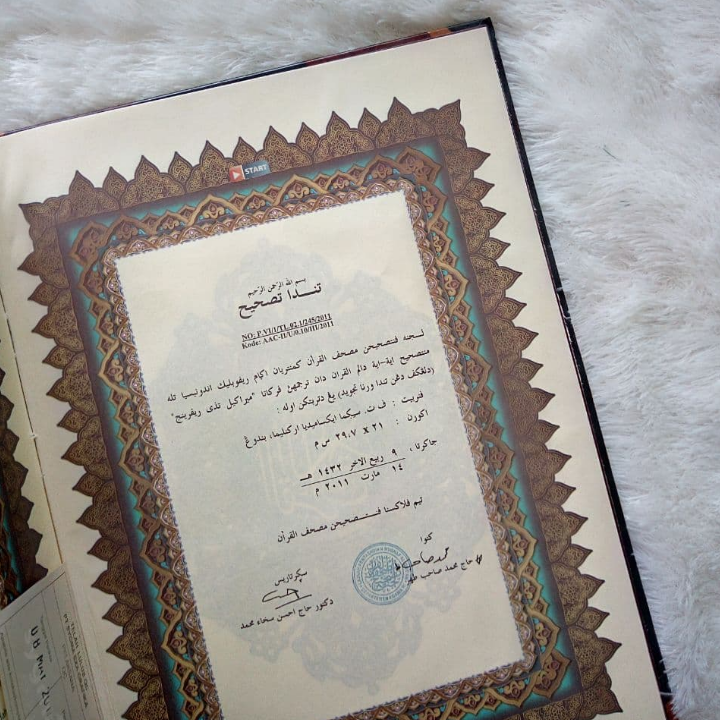 START
بسم الله الرحمن الرحيم
تندا تصحيح
NO: P.VI/1/TL.02.1/245/2011
Kode: AAC-II/U/0.10/III/2011
لجنة فنتصحيحن مصحف القرآن كمنتريان اڬام ريڤوبليك اندونيسيا تله
منتصحيح اية-اية دالم القران دان ترجمهن فركاتا "ميراكيل تذى ريفرينج"
(دلڠكڤ دڠن تندا ورنا تجويد) يڠ دتربتكن اوله :
فنربيت : ف ت. سيكما ايكساميديا اركنليما، بندوڠ
اكورن : ٢١ X ٢٩.٧ س م
جاكرتا، ٩ ربيع الاخر ١٤٣٢ هـ
١٤ مارت ٢٠١١ م
تيم فلاكسنا فنتصحيحن مصحف القرآن
كتوا
سكرتاريس
حاج محمد صاحب طهر
دكتور حاج احسن سخاء محمد